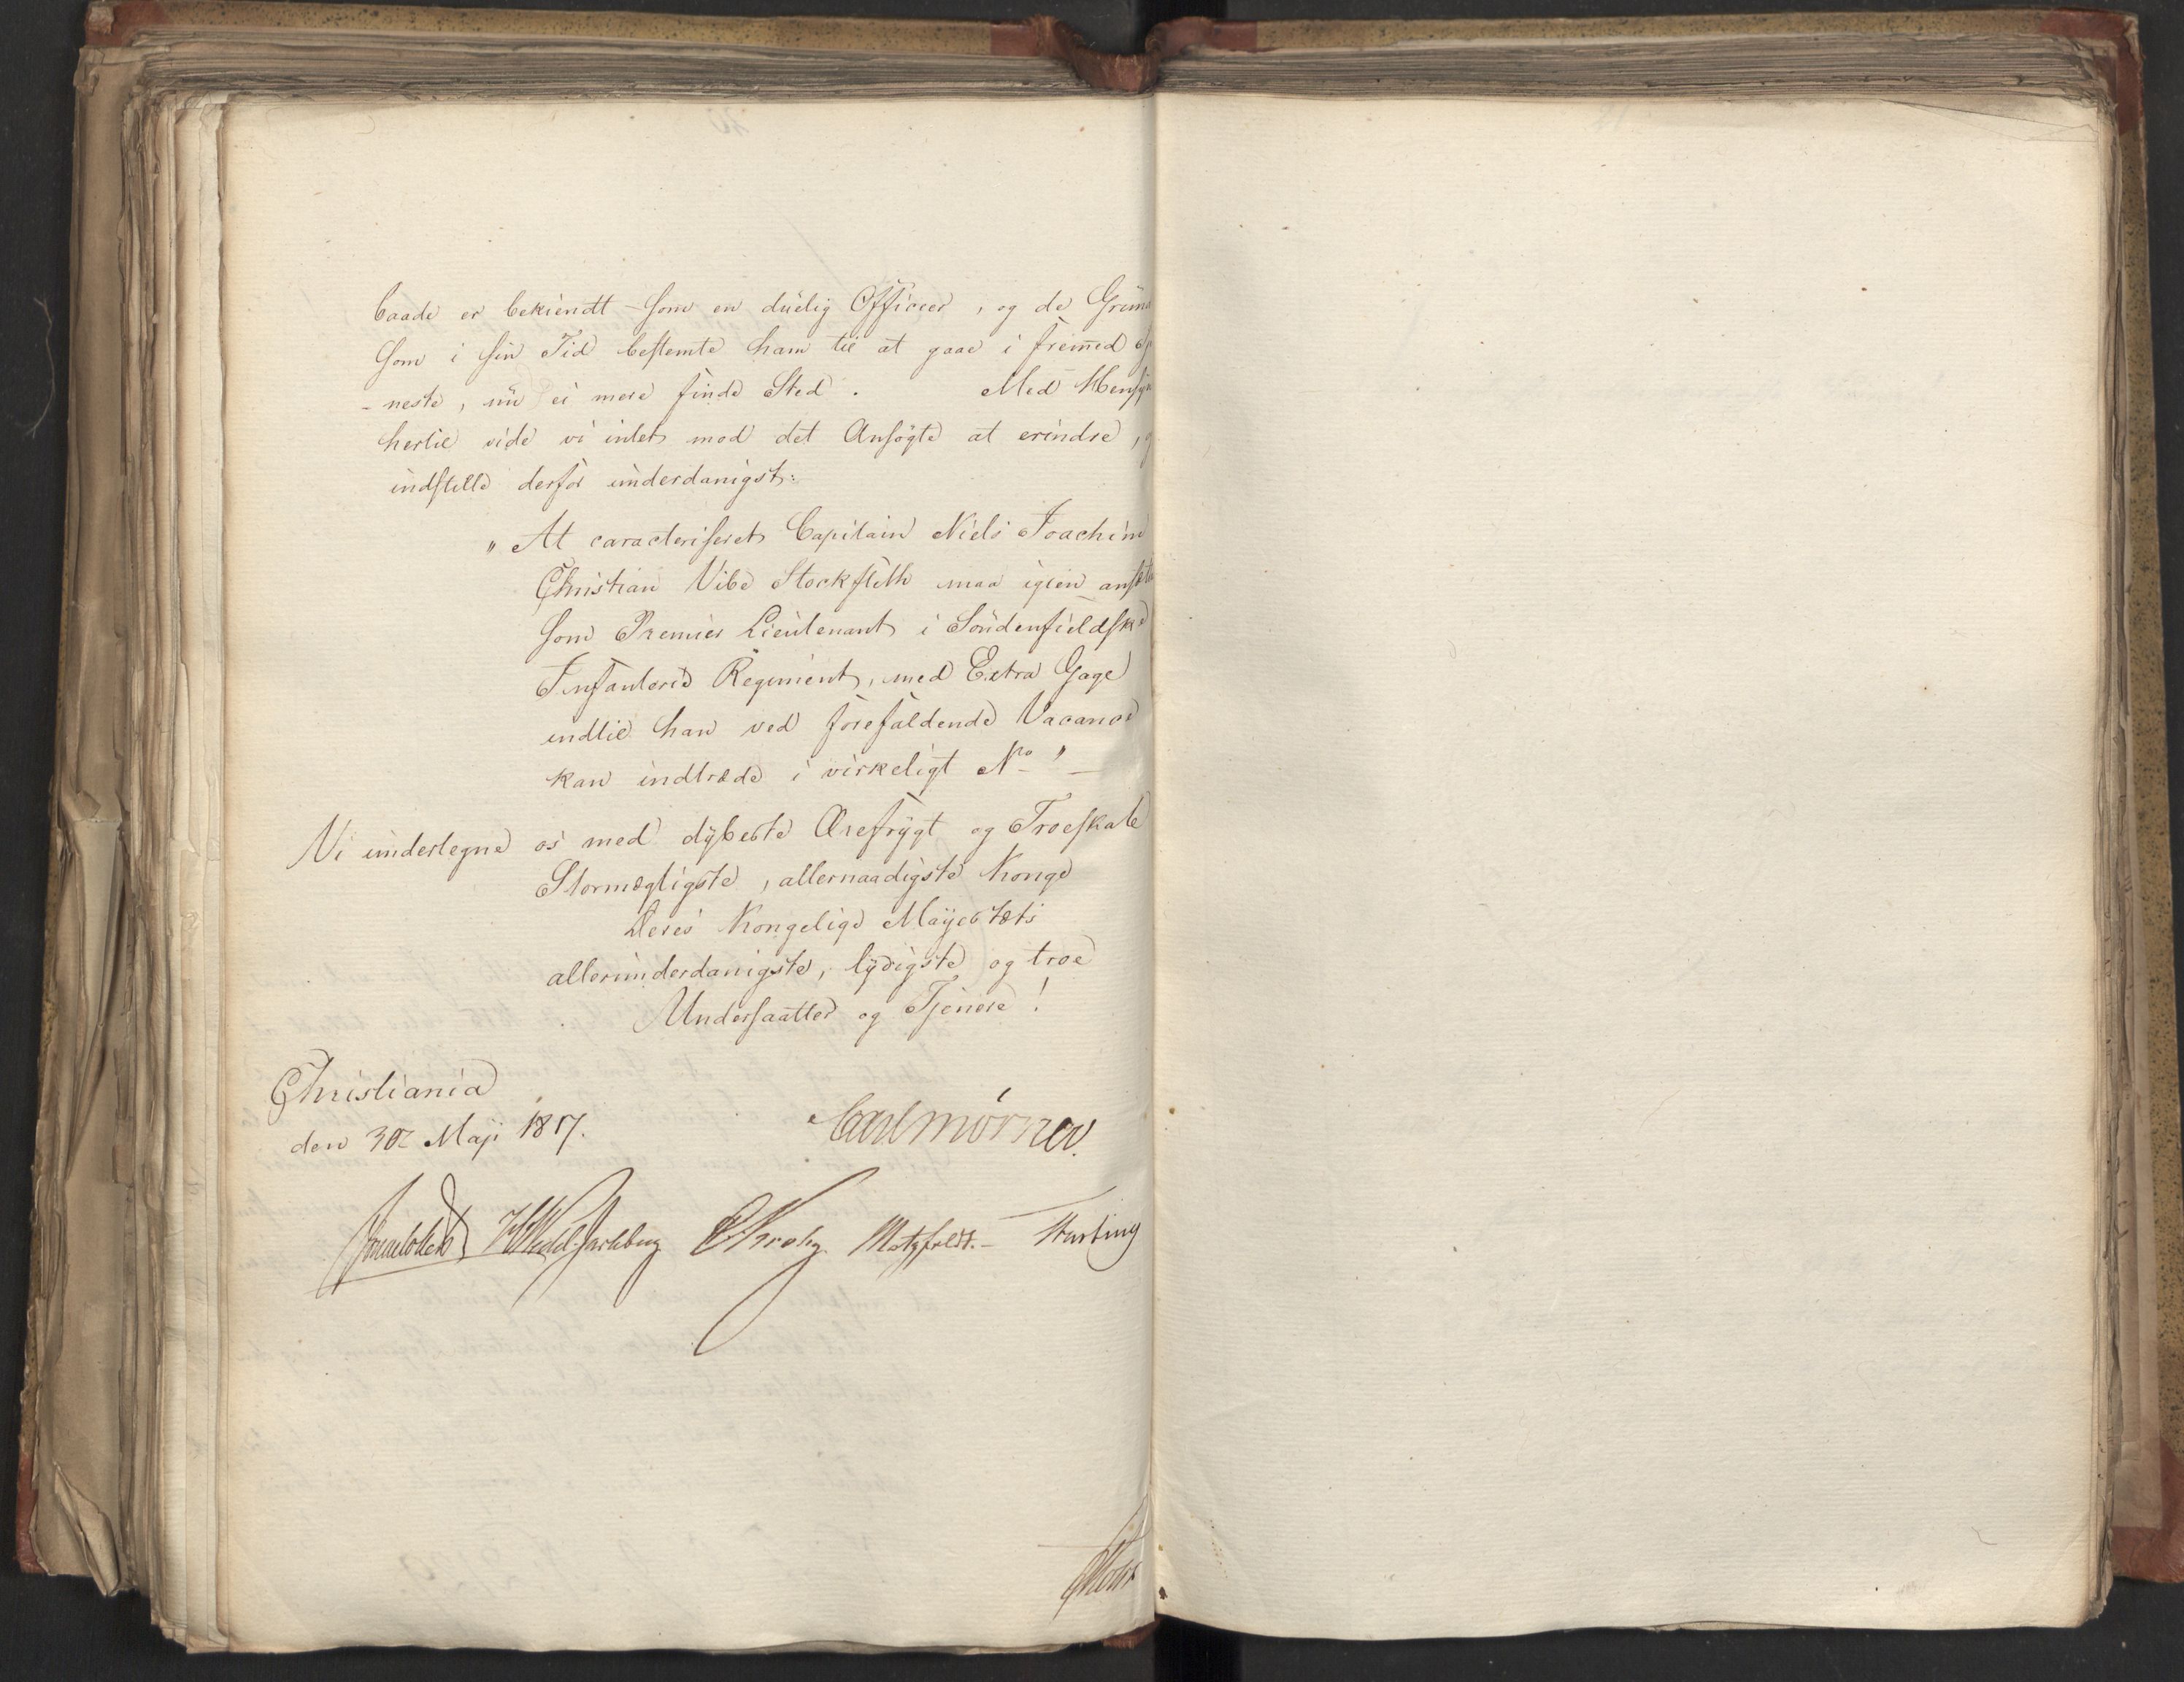 baade er bekiendt som en duelig Officier, og de Grun
som i sin Tid bestemte ham til at gaae i fremed
-neste, nu ei mere finde Sted. Med Hensyn
hertil vide vi intet mod det Ansøgte at erindre,
indstille derfor underdanigst:
"At caracteriseret Capitain Niels Joachim
Christian Vibe Stockfleth maa igien ansæt
som Premier Lieutenant i Søndenfieldske
Infanterie Regiment, med Extra Gage
indtil han ved forefaldende Vacance
kan indtræde i virkeligt No" —
Vi undertegne os med dybeste Ærefrygt og Troeskab
Stormægtigste, allernaadigste Konge
Deres Kongelige Mayestæts
allerunderdanigste, lydigste og troe
Undersaatter og Tjenere!
Christiania
den 30 Maji 1817.
Carl Mörner.
Sommerhielm HWedel Jarlsberg CKrohg. Motzfeldt. - Hasting